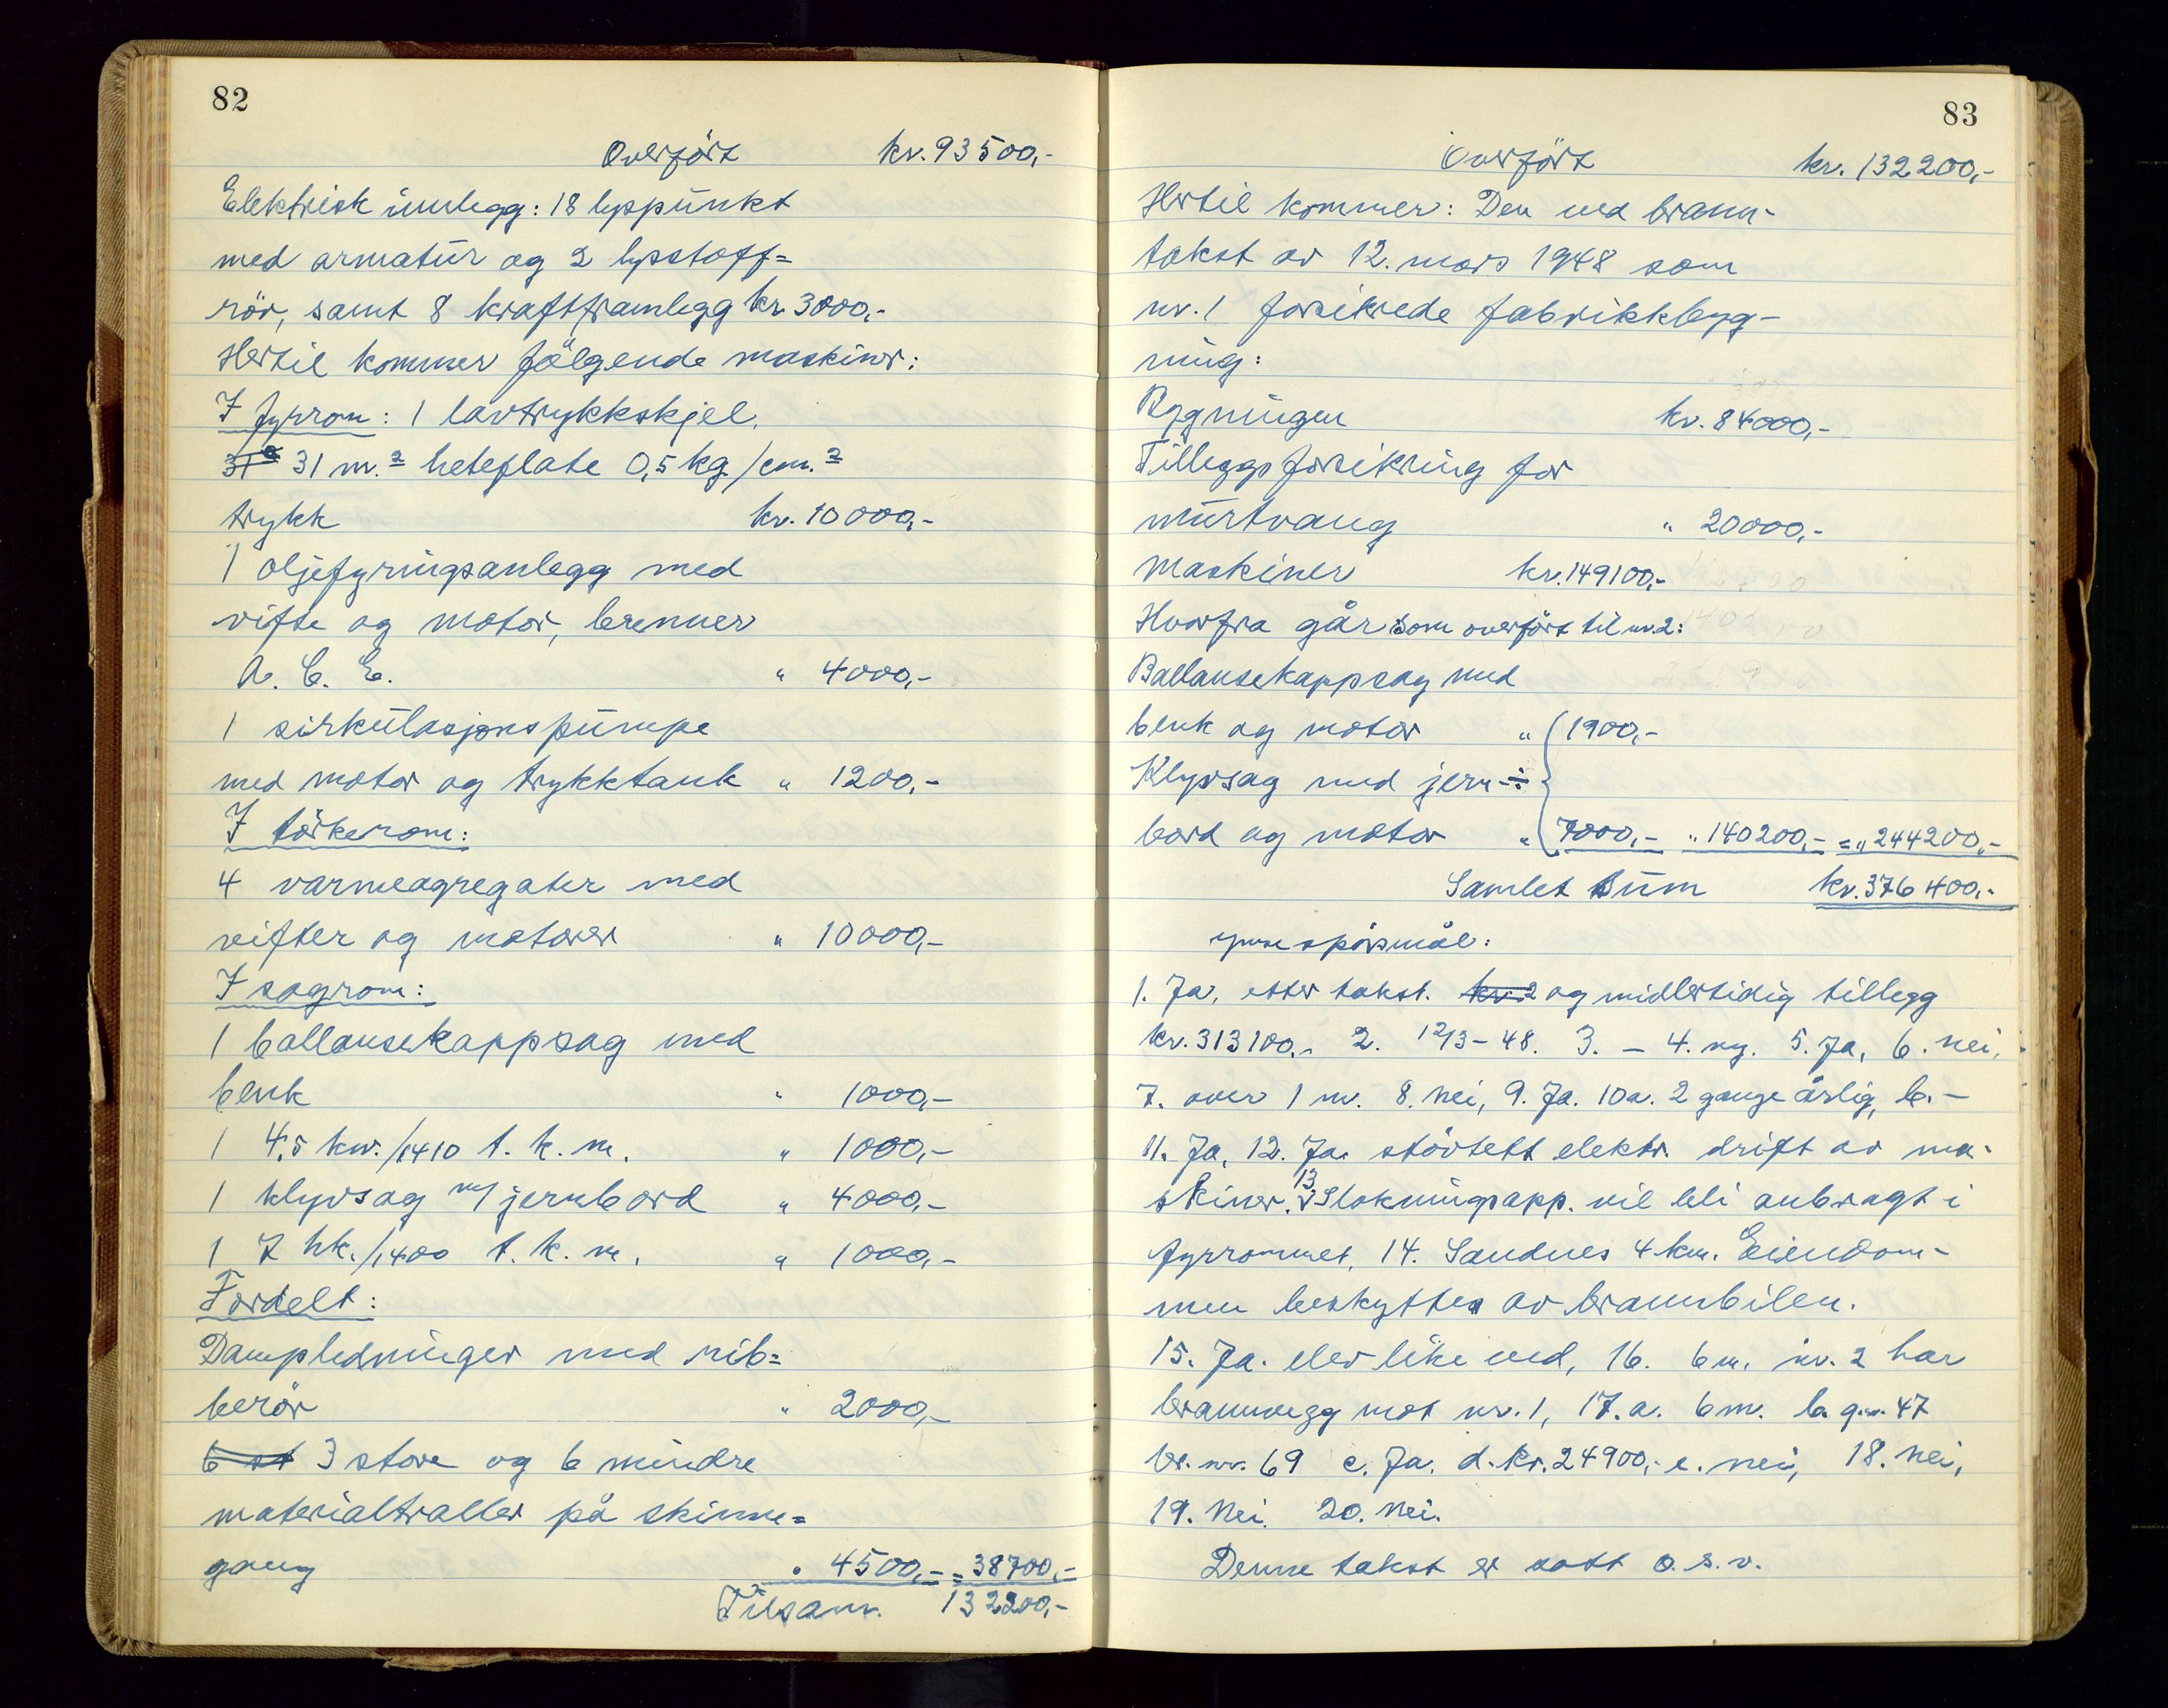 82
Overført kr. 93500,-
Elektrisk innlegg: 18 lyspunkt
med armatur og 2 lysstoff=
rör, samt 8 kraftframlegg kr. 3000,-
Hertil kommer følgende maskiner:
I fyrrom: 1 lavtrykkskjel,
31 2 31 m.2 heteflate 0,5 kg./cm.2
trykk kr. 10000,-
1 oljefyringsanlegg med
vifte og motor, brenner
A. C. E. " 4000,-
1 sirkulasjonspumpe
med motor og trykktank " 1200,-
I törkerom:
4 varmeagregater med
vifter og motorer " 10000,-
I sagrom:
1 ballansekappsag med
benk " 1000,-
1 4,5 kw./1410 t. k. m. " 1000,-
1 klyvsag m/jernbord " 4000,-
1 7 hk./1400 t. k. m. " 1000,-
Fordelt:
Dampledninger med rib=
berör " 2000,-
6 st 3 store og 6 mindre
materialtraller på skinne=
gang " 4500,- = 38700,-
Tilsam. 132200,-
83
Overfört kr. 132200,-
Hertil kommer: Den ved brann-
takst av 12. mars 1948 som
nr. 1 forsikrede fabrikkbyg-
ning:
Bygningen kr. 84000,-
Tilleggsforsikring for
murtvang " 20000,-
Maskiner kr. 149100,-
Hvorfra går som overfört til nr. 2:
Ballansekappsag med
benk og motor " 1900,-
Klyvsag med jern- ÷
bord og motor " 7000,- " 140200,- = " 244200,-
Samlet sum kr. 376400,-
spörsmål:
1. Ja, etter takst. kr. 2 og midlertidig tillegg
kr. 313100,- 2. 12/3-48. 3. - 4. ny. 5. Ja, 6. nei,
7. over 1 m. 8. nei, 9. Ja. 10a. 2 gange årlig, b. -
11. Ja, 12. Ja. stövtett elektr. drift av ma-
skiner. 13 Slokningsapp. vil bli anbragt i
fyrrommet, 14. Sandnes 4 km. Eiendom-
men beskyttes av brannbilen.
15. Ja. elev like ved, 16. 6 m. nr. 2 har
brannvegg mot nr. 1, 17. a. 6 m. b. g.nr. 47
br. nr. 69 c. Ja. d. kr. 24900,- e. nei, 18. nei,
19. Nei. 20. Nei.
Denne takst er satt o. s. v.